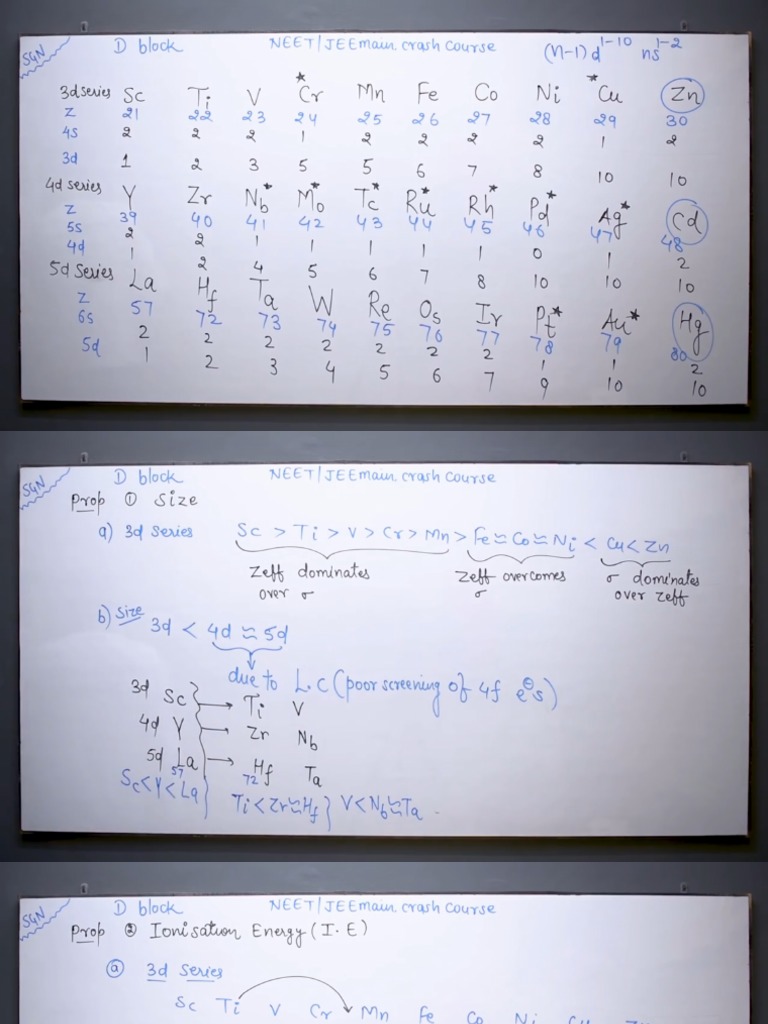 SGN D block NEET/JEEmain. crash course (n-1)d¹⁻¹⁰ ns¹⁻²
3d series Sc Ti V Cr* Mn Fe Co Ni *Cu Zn
Z 21 22 23 24 25 26 27 28 29 30
4s 2 2 2 1 2 2 2 2 1 2
3d 1 2 3 5 5 6 7 8 10 10
4d series Y Zr Nb* Mo* Tc* Ru* Rh* Pd* Ag* Cd
Z 39 40 41 42 43 44 45 46 47 48
5s 2 2 1 1 1 1 1 0 1 2
4d 1 2 4 5 6 7 8 10 10 10
5d Series La Hf Ta W Re Os Ir Pt* Au* Hg
Z 57 72 73 74 75 76 77 78 79 80
6s 2 2 2 2 2 2 2 1 1 2
5d 1 2 3 4 5 6 7 9 10 10
SGN D block NEET/JEEmain. crash course
Prop ① Size
a) 3d series Sc > Ti > V > Cr > Mn > Fe ≈ Co ≈ Ni < Cu < Zn
Zeff dominates Zeff overcomes σ dominates
over σ σ over Zeff
b) Size 3d < 4d ≈ 5d
due to L.C (poor screening of 4f e⊖s)
3d Sc → Ti V
4d Y → Zr Nb
5d La → Hf Ta
57 72
Sc<Y<La} Ti<Zr≈Hf} V<Nb≈Ta
SGN D block NEET/JEEmain. crash course
Prop ② Ionisation Energy (I.E)
ⓐ 3d Series
Sc Ti V Cr Mn Fe Co Ni Cu Zn